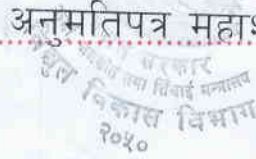 अनुमतिपत्र महा
सरकार
तथा सिंचाई मन्त्रालय
विद्युत विकास विभाग
२०५०